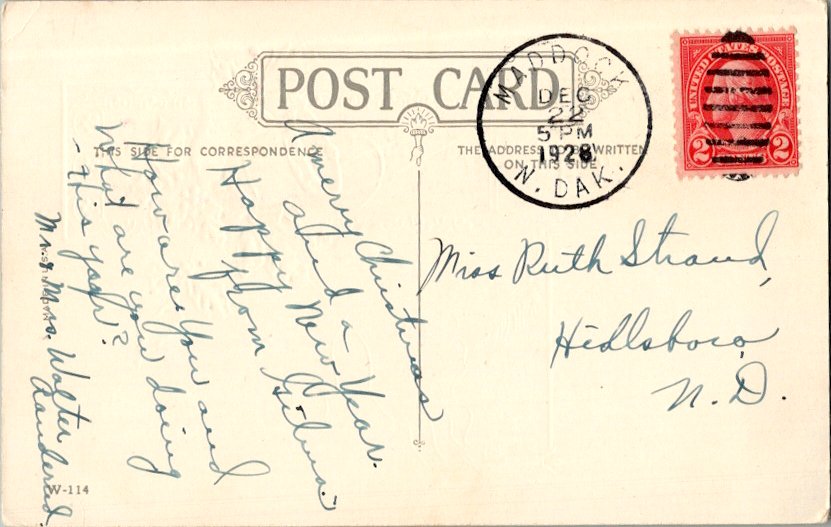 POST CARD
THIS SIDE FOR CORRESPONDENCE
THE ADDRESS TO BE WRITTEN
ON THIS SIDE
MADDOCK
DEC
22
5 PM
1928
N. DAK.
UNITED STATES POSTAGE
2 2
A merry Christmas
and a
Happy New Year.
from
How are you and
what are you doing
this year?
Mr. & Mrs. Walter
Miss Ruth Strand,
Hillsboro,
N. D.
W-114